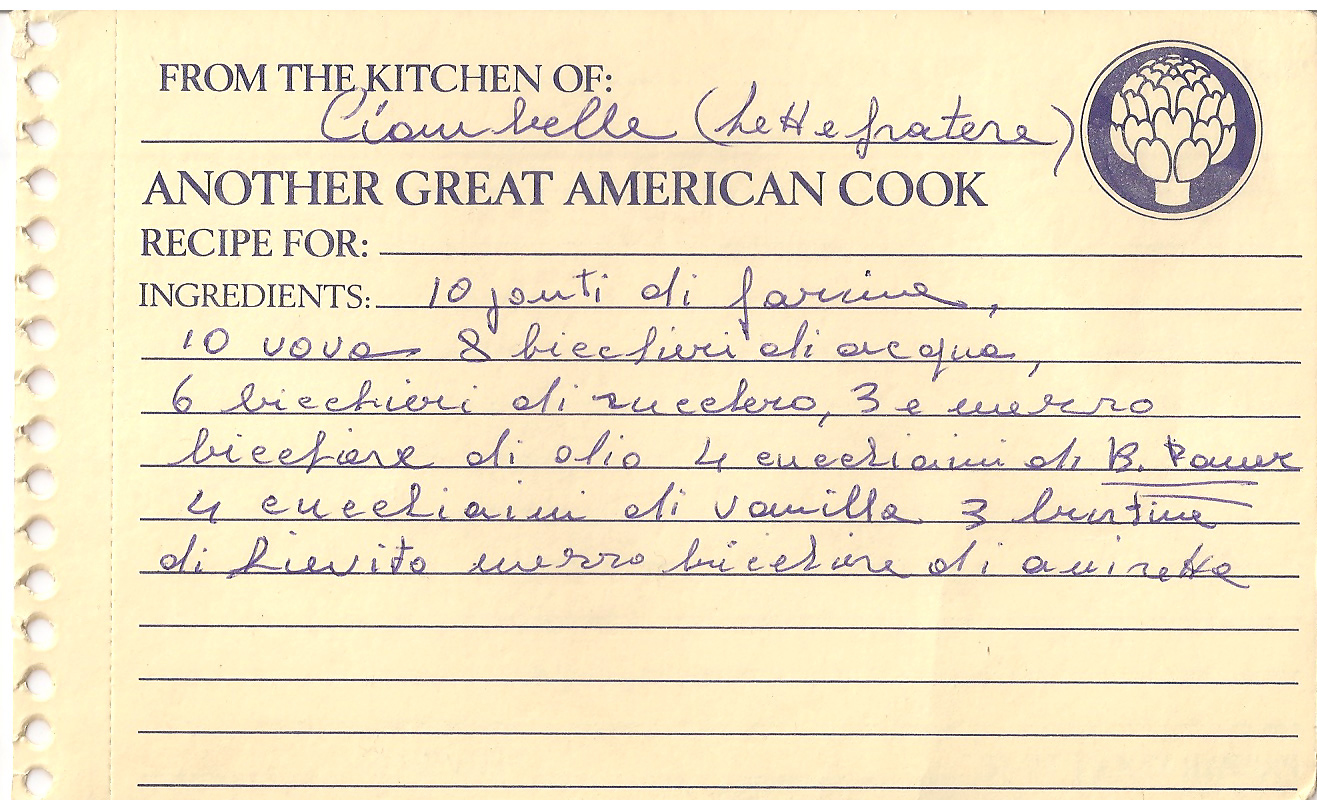 FROM THE KITCHEN OF:
Ciambelle (
ANOTHER GREAT AMERICAN COOK
RECIPE FOR:
INGREDIENTS: 10 di farina,
10 uova 8 bicchieri di acqua,
6 bicchieri di zucchero, 3 e mezzo
bicchiere di olio 4 cucchiaini di B. Power
4 cucchiaini di vanilla 3 bustine
di Lievito mezzo bicchiere di anisetta